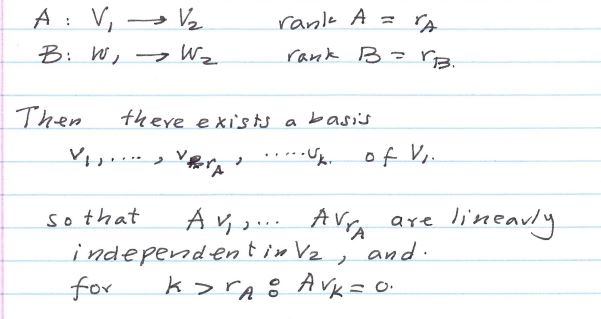 A : V₁ → V₂ rank A = r_A
B : W₁ → W₂ rank B = r_B.
Then there exists a basis
v₁, .... , v_{r_A} , ..... v_k. of V₁.
so that A v₁, ... A v_{r_A} are linearly
independent in V₂, and.
for k > r_A : A v_k = 0.